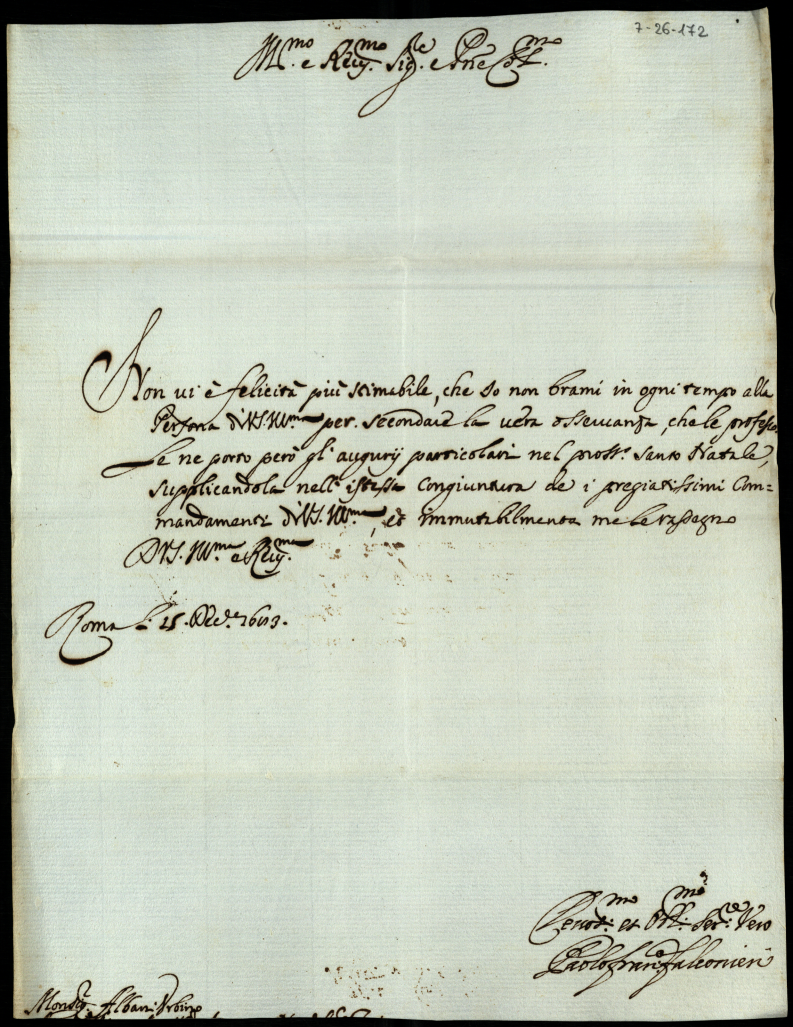 7-26-172
Ill.mo e Rev.mo Sig.re e Pne Col.mo
Non vi è felicità più stimabile, che Io non brami in ogni tempo alla
Persona di V.S. Ill.ma per secondare la vera osseruanza, che le professo.
Le ne porto però gl'augurij particolari nel pross.o santo Natale,
supplicandola nell'istessa congiuntura de i pregiatissimi Com=
mandamenti di V.S. Ill.ma, et immutabilmente me le rassegno
D.V.S. Ill.ma e Rev.ma
Roma li 15 Dec.e
Deuot.mo et Obl.mo Ser.re Vero
Paolo Fran.o Falconieri
Monsig.r Albani Vrbino